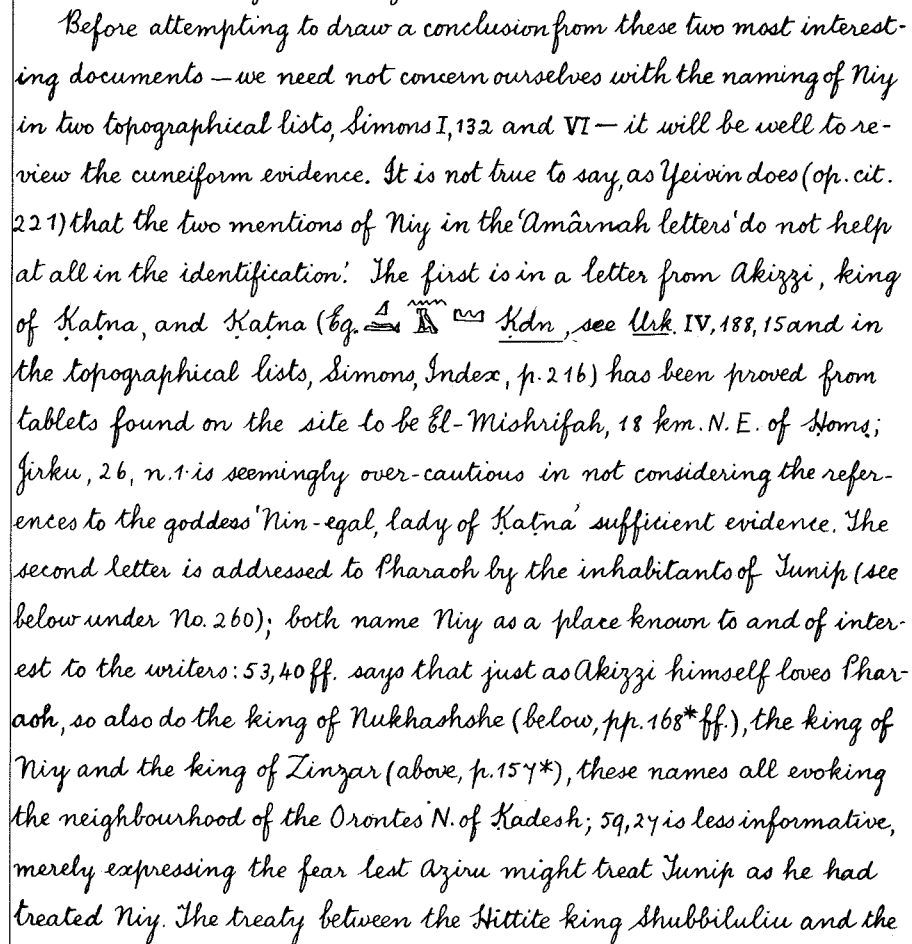 Before attempting to draw a conclusion from these two most interest-
ing documents — we need not concern ourselves with the naming of Niy
in two topographical lists, Simons I, 132 and VI — it will be well to re-
view the cuneiform evidence. It is not true to say, as Yeivin does (op. cit.
221) that the two mentions of Niy in the 'Amârnah letters 'do not help
at all in the identification'. The first is in a letter from Akizzi, king
of Ḳaṭna, and Ḳaṭna (Eg. Ḳdn, see Urk. IV, 188, 15 and in
the topographical lists, Simons, Index, p. 216) has been proved from
tablets found on the site to be El-Mishrifah, 18 km. N. E. of Ḥomṣ;
Jirku, 26, n. 1 is seemingly over-cautious in not considering the refer-
ences to the goddess 'Nin-egal, lady of Ḳaṭna' sufficient evidence. The
second letter is addressed to Pharaoh by the inhabitants of Tunip (see
below under No. 260); both name Niy as a place known to and of inter-
est to the writers: 53, 40 ff. says that just as Akizzi himself loves Phar-
aoh, so also do the king of Nukhashshe (below, pp. 168* ff.), the king of
Niy and the king of Zinzar (above, p. 157*), these names all evoking
the neighbourhood of the Orontes N. of Ḳadesh; 59, 27 is less informative,
merely expressing the fear lest Aziru might treat Tunip as he had
treated Niy. The treaty between the Hittite king Shubbiluliu and the